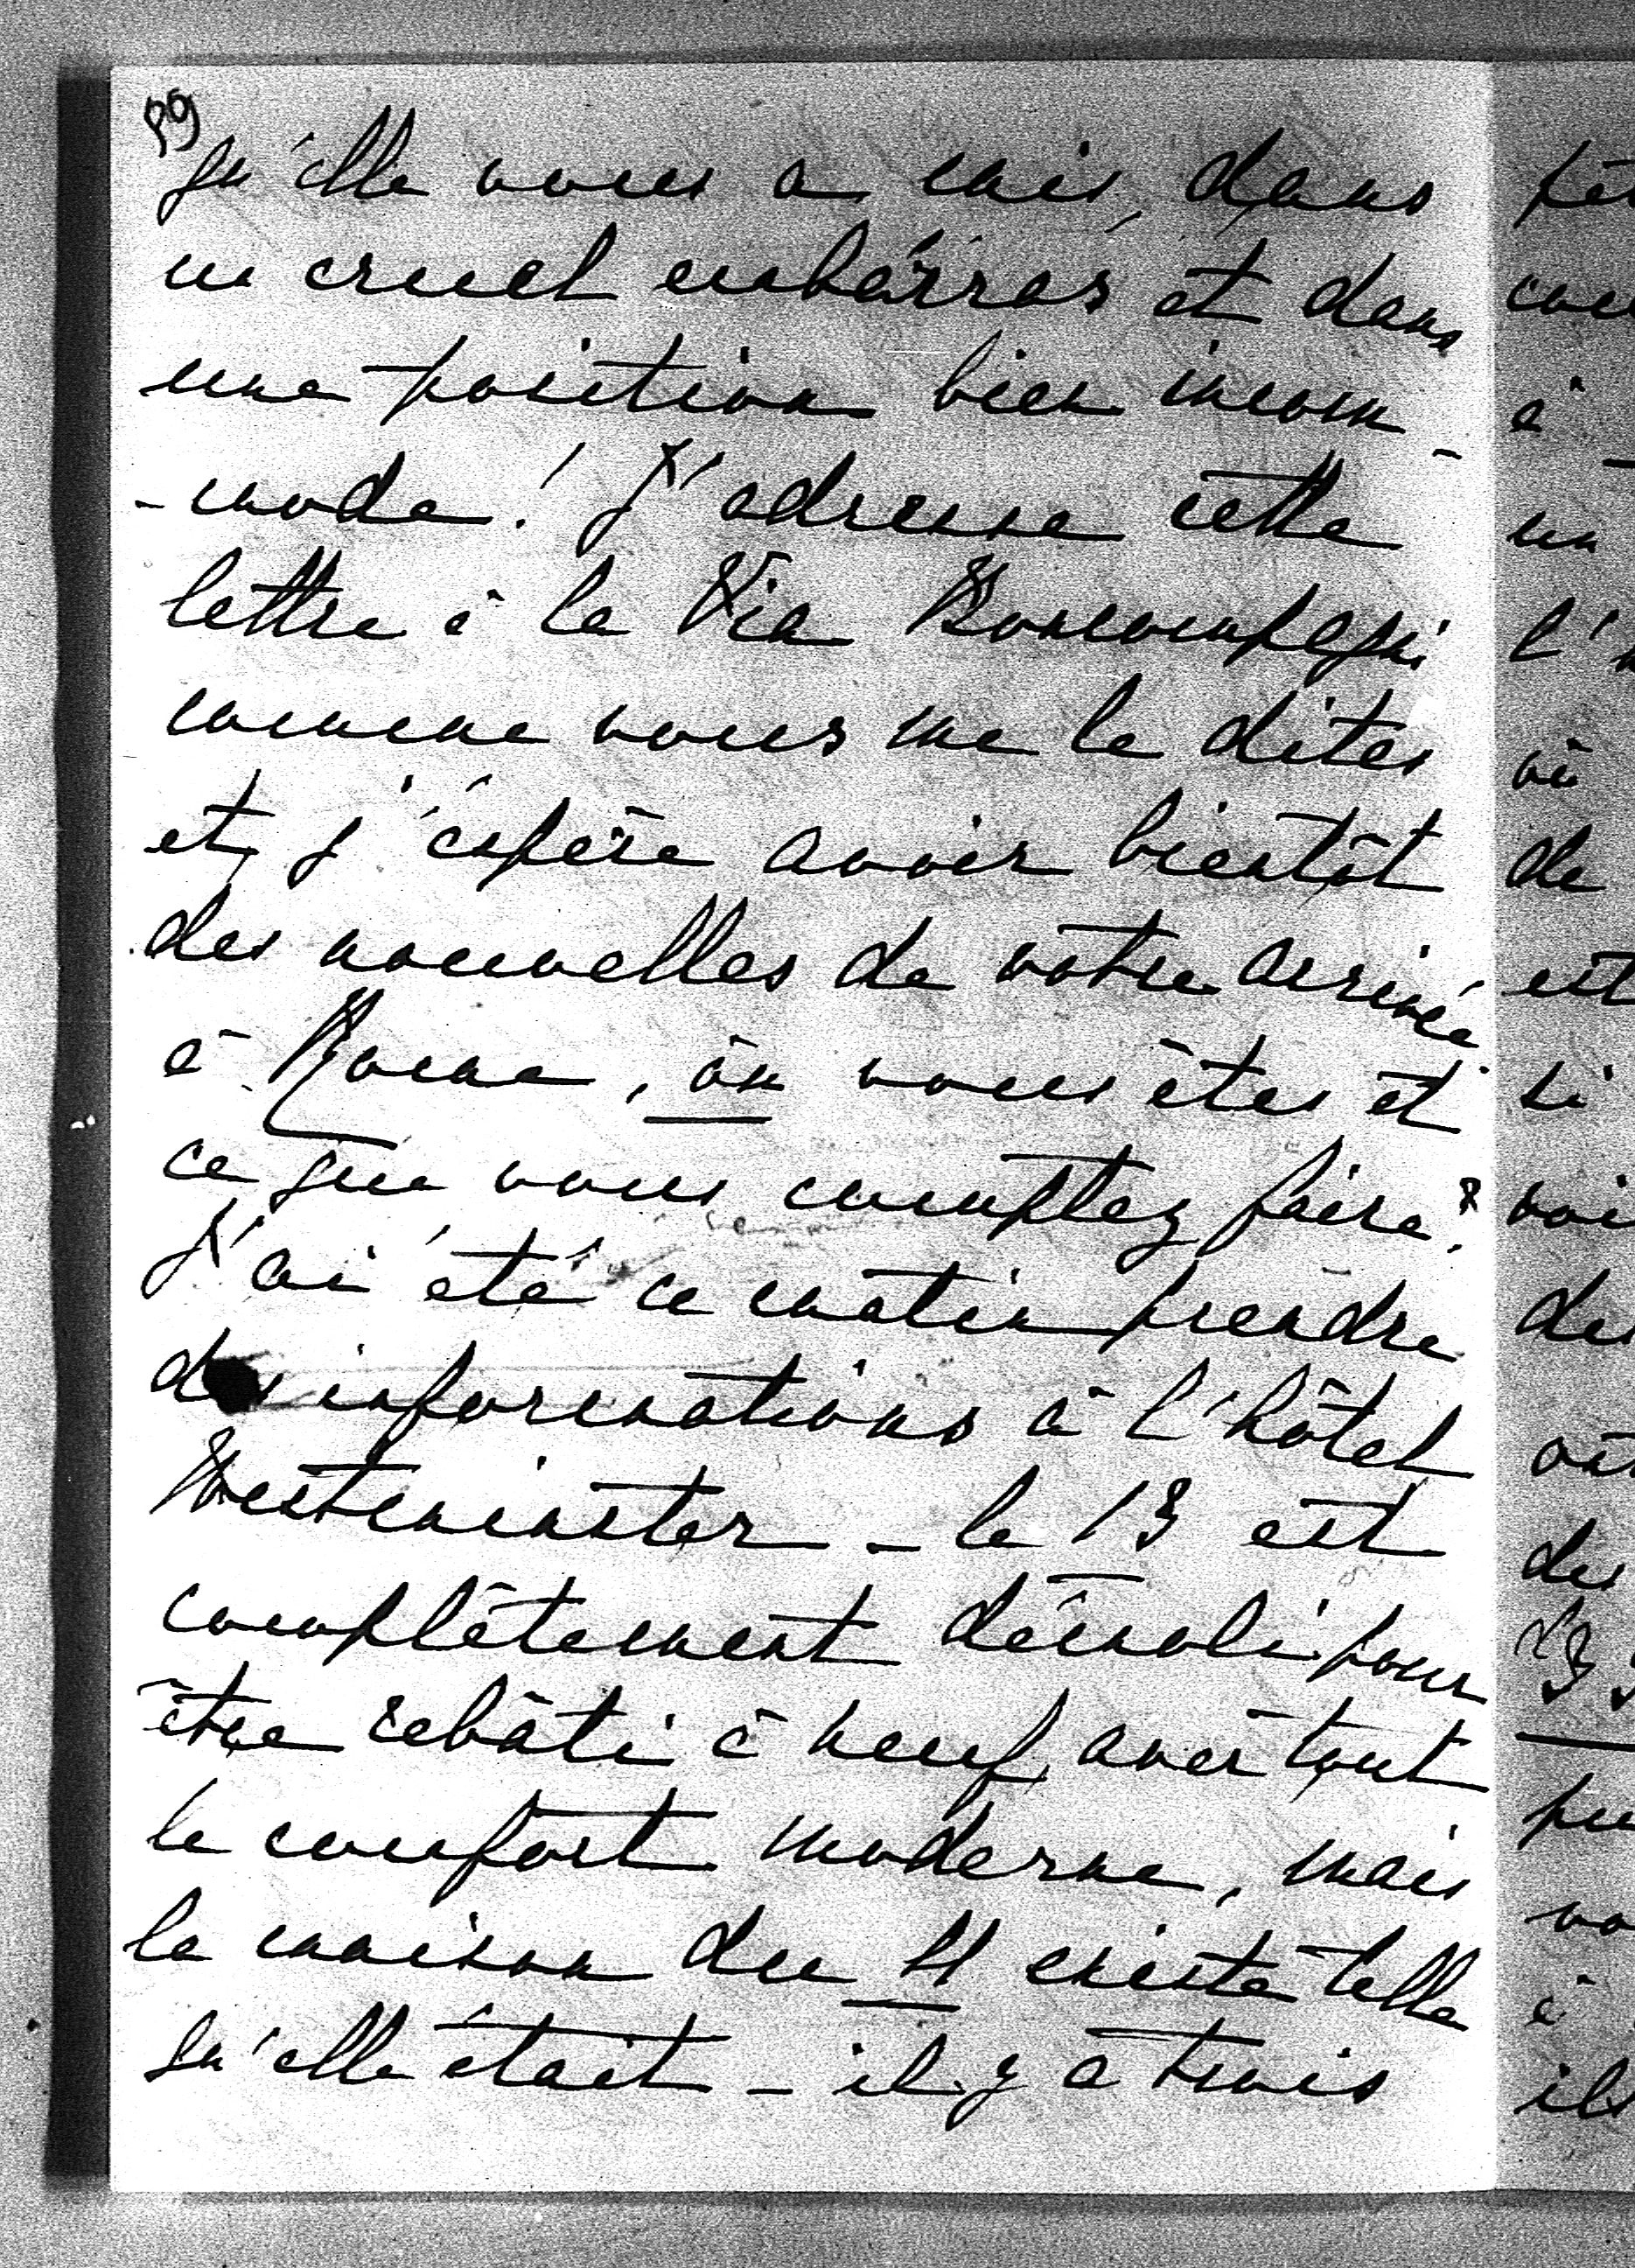 89
qu'elle vous a mis, dans
un cruel embarras et dans
une position bien incom-
-mode! J'adresse cette
lettre à la Via Boncompagni
comme vous me le dites
et j'espère avoir bientôt
des nouvelles de votre arrivée
à Rome, où vous êtes et
ce que vous comptez faire?
J'ai été ce matin prendre
des informations à l'hôtel
Westminster - le 13 est
complètement démoli pour
être rebâti à neuf, avec tout
le confort moderne, mais
la maison du 11 existe telle
qu'elle était - il y a trois